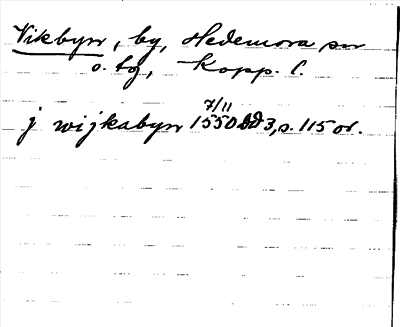 Vikbyn, by, Hedemora sn
o. tg, Kopp. l.
7/11
j wijkabyn 1550 DD 3, s. 115 or.